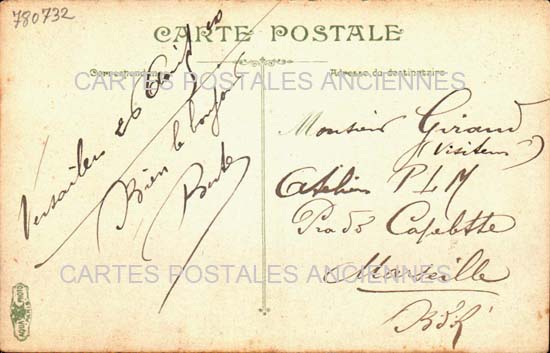 780732
CARTE POSTALE
Correspondance
Adresse du destinataire
CARTES POSTALES ANCIENNES
Versailles 26
Bien le bonjour
Berthe
Monsieur Giraud
(Visiteur)
Ateliers PLM
Prado Capelette
Marseille
BdR
CARTES POSTALES ANCIENNES
AQUA PHOTO